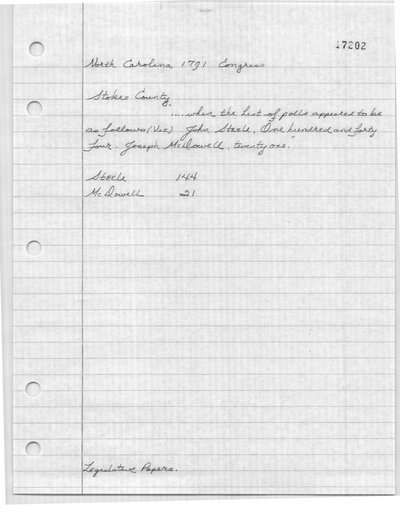 17202
North Carolina 1791 Congress
Stokes County
....when the list of polls appeared to be
as follows (Viz) John Steele, One hundred and forty
four. Joseph McDowell, twenty one.
Steele 144
McDowell 21
Legislative Papers.